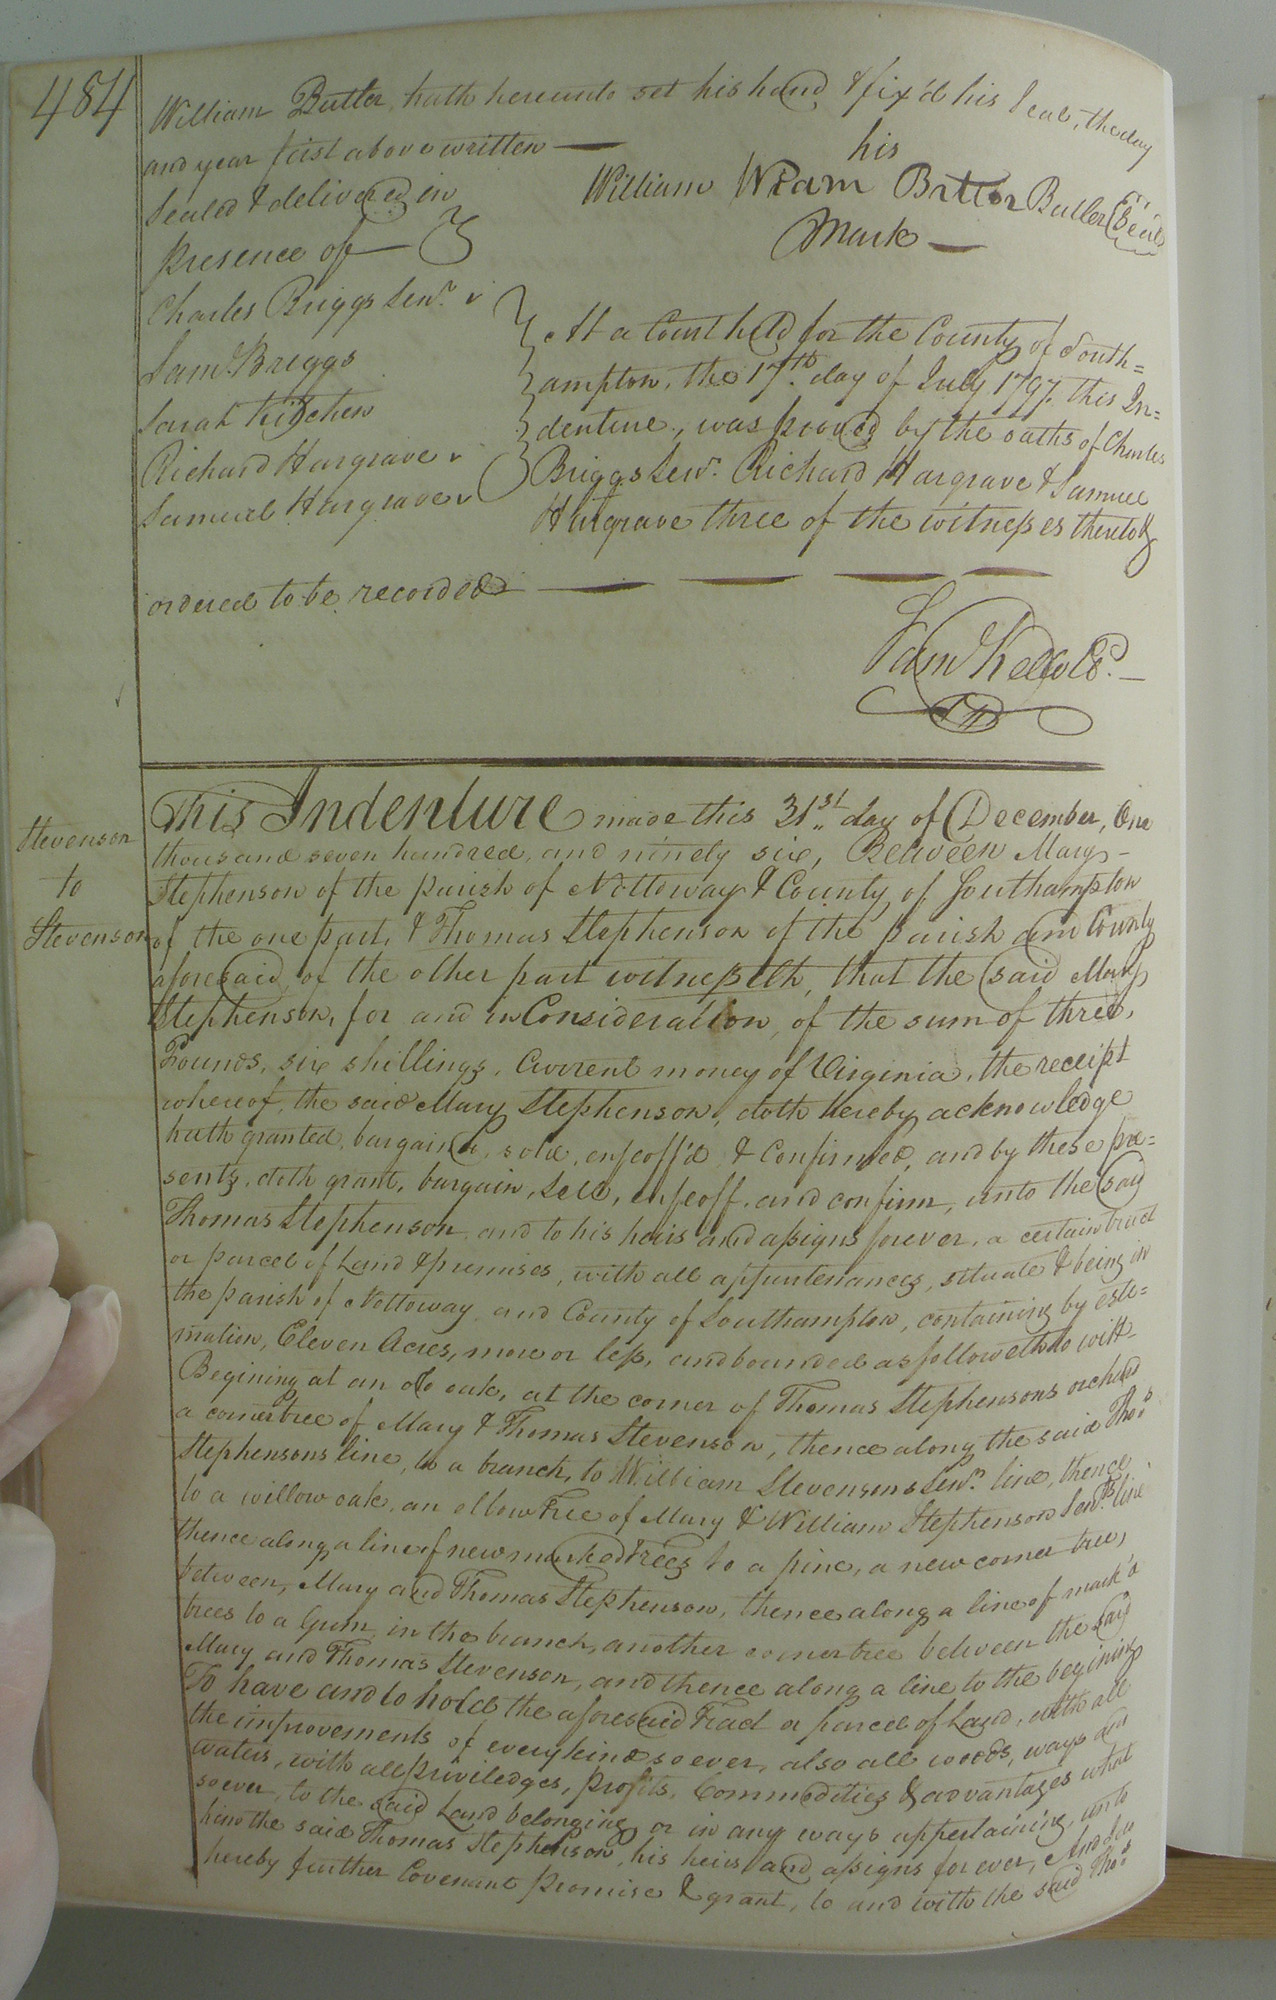 484
William Butler, hath hereunto set his hand & fix'd his Seal, the day
and year first above written —
Sealed & delivered in
presence of —
his
William Wram Brttor Butler Seal
Mark —
Charles Briggs Senr. v
Saml. Briggs
Sarah Kitchen
Richard Hargrave v
Samuel Hargrave v
At a Court held for the County of South=
ampton, the 17th. day of July 1797. this In=
denture, was proved by the oaths of Charles
Briggs Senr. Richard Hargrave & Samuel
Hargrave three of the witnesses thereto &
ordered to be recorded —
Saml Kello CC. —
Stevenson
to
Stevenson
This Indenture made this 31st.. day of December, One
thousand seven hundred, and ninety six, Between Mary -
Stephenson of the parish of Nottoway & County of Southampton
of the one part, & Thomas Stephenson of the parish and County
aforesaid, of the other part witnesseth, that the said Mary
Stephenson, for and in Consideration, of the sum of three,
Pounds, six shillings, Current money of Virginia, the receipt
whereof, the said Mary Stephenson, doth hereby acknowledge
hath granted, bargain'd, sold, enfeoff'd & Confirmed, and by these pre=
sents, doth grant, bargain, Sell, enfeoff, and confirm, unto the said
Thomas Stephenson, and to his heirs and assigns forever, a certain tract
or parcel of Land & premises, with all appurtenances, situate & being in
the parish of Nottoway and County of Southampton, containing by este=
mation, Eleven Acres, more or less, and bounded as followeth to witt
Begining at an old oak, at the corner of Thomas Stephensons orchard
a corner tree of Mary & Thomas Stevenson, thence along the said Thos
Stephensons line, to a branch, to William Stevensons Senr. line, thence
to a willow oak, an ellbow tree of Mary & William Stephenson Senrs. line
thence along a line of new marked trees to a pine, a new corner tree,
between, Mary and Thomas Stephenson, thence along a line of mark'd
trees to a Gum, in the branch, another corner tree between the said
Mary and Thomas Stevenson, and thence along a line to the begining
To have and to hold the aforesaid Tract or parcel of Land, with all
the improvements of every kind soever, also all woods, ways and
waters, with all priviledges, profits, Commodities & advantages what
soever, to the said Land belonging or in any ways appertaining, unto
him the said Thomas Stephenson, his heirs and assigns forever, And do
hereby further Covenant promise & grant, to and with the said Thos